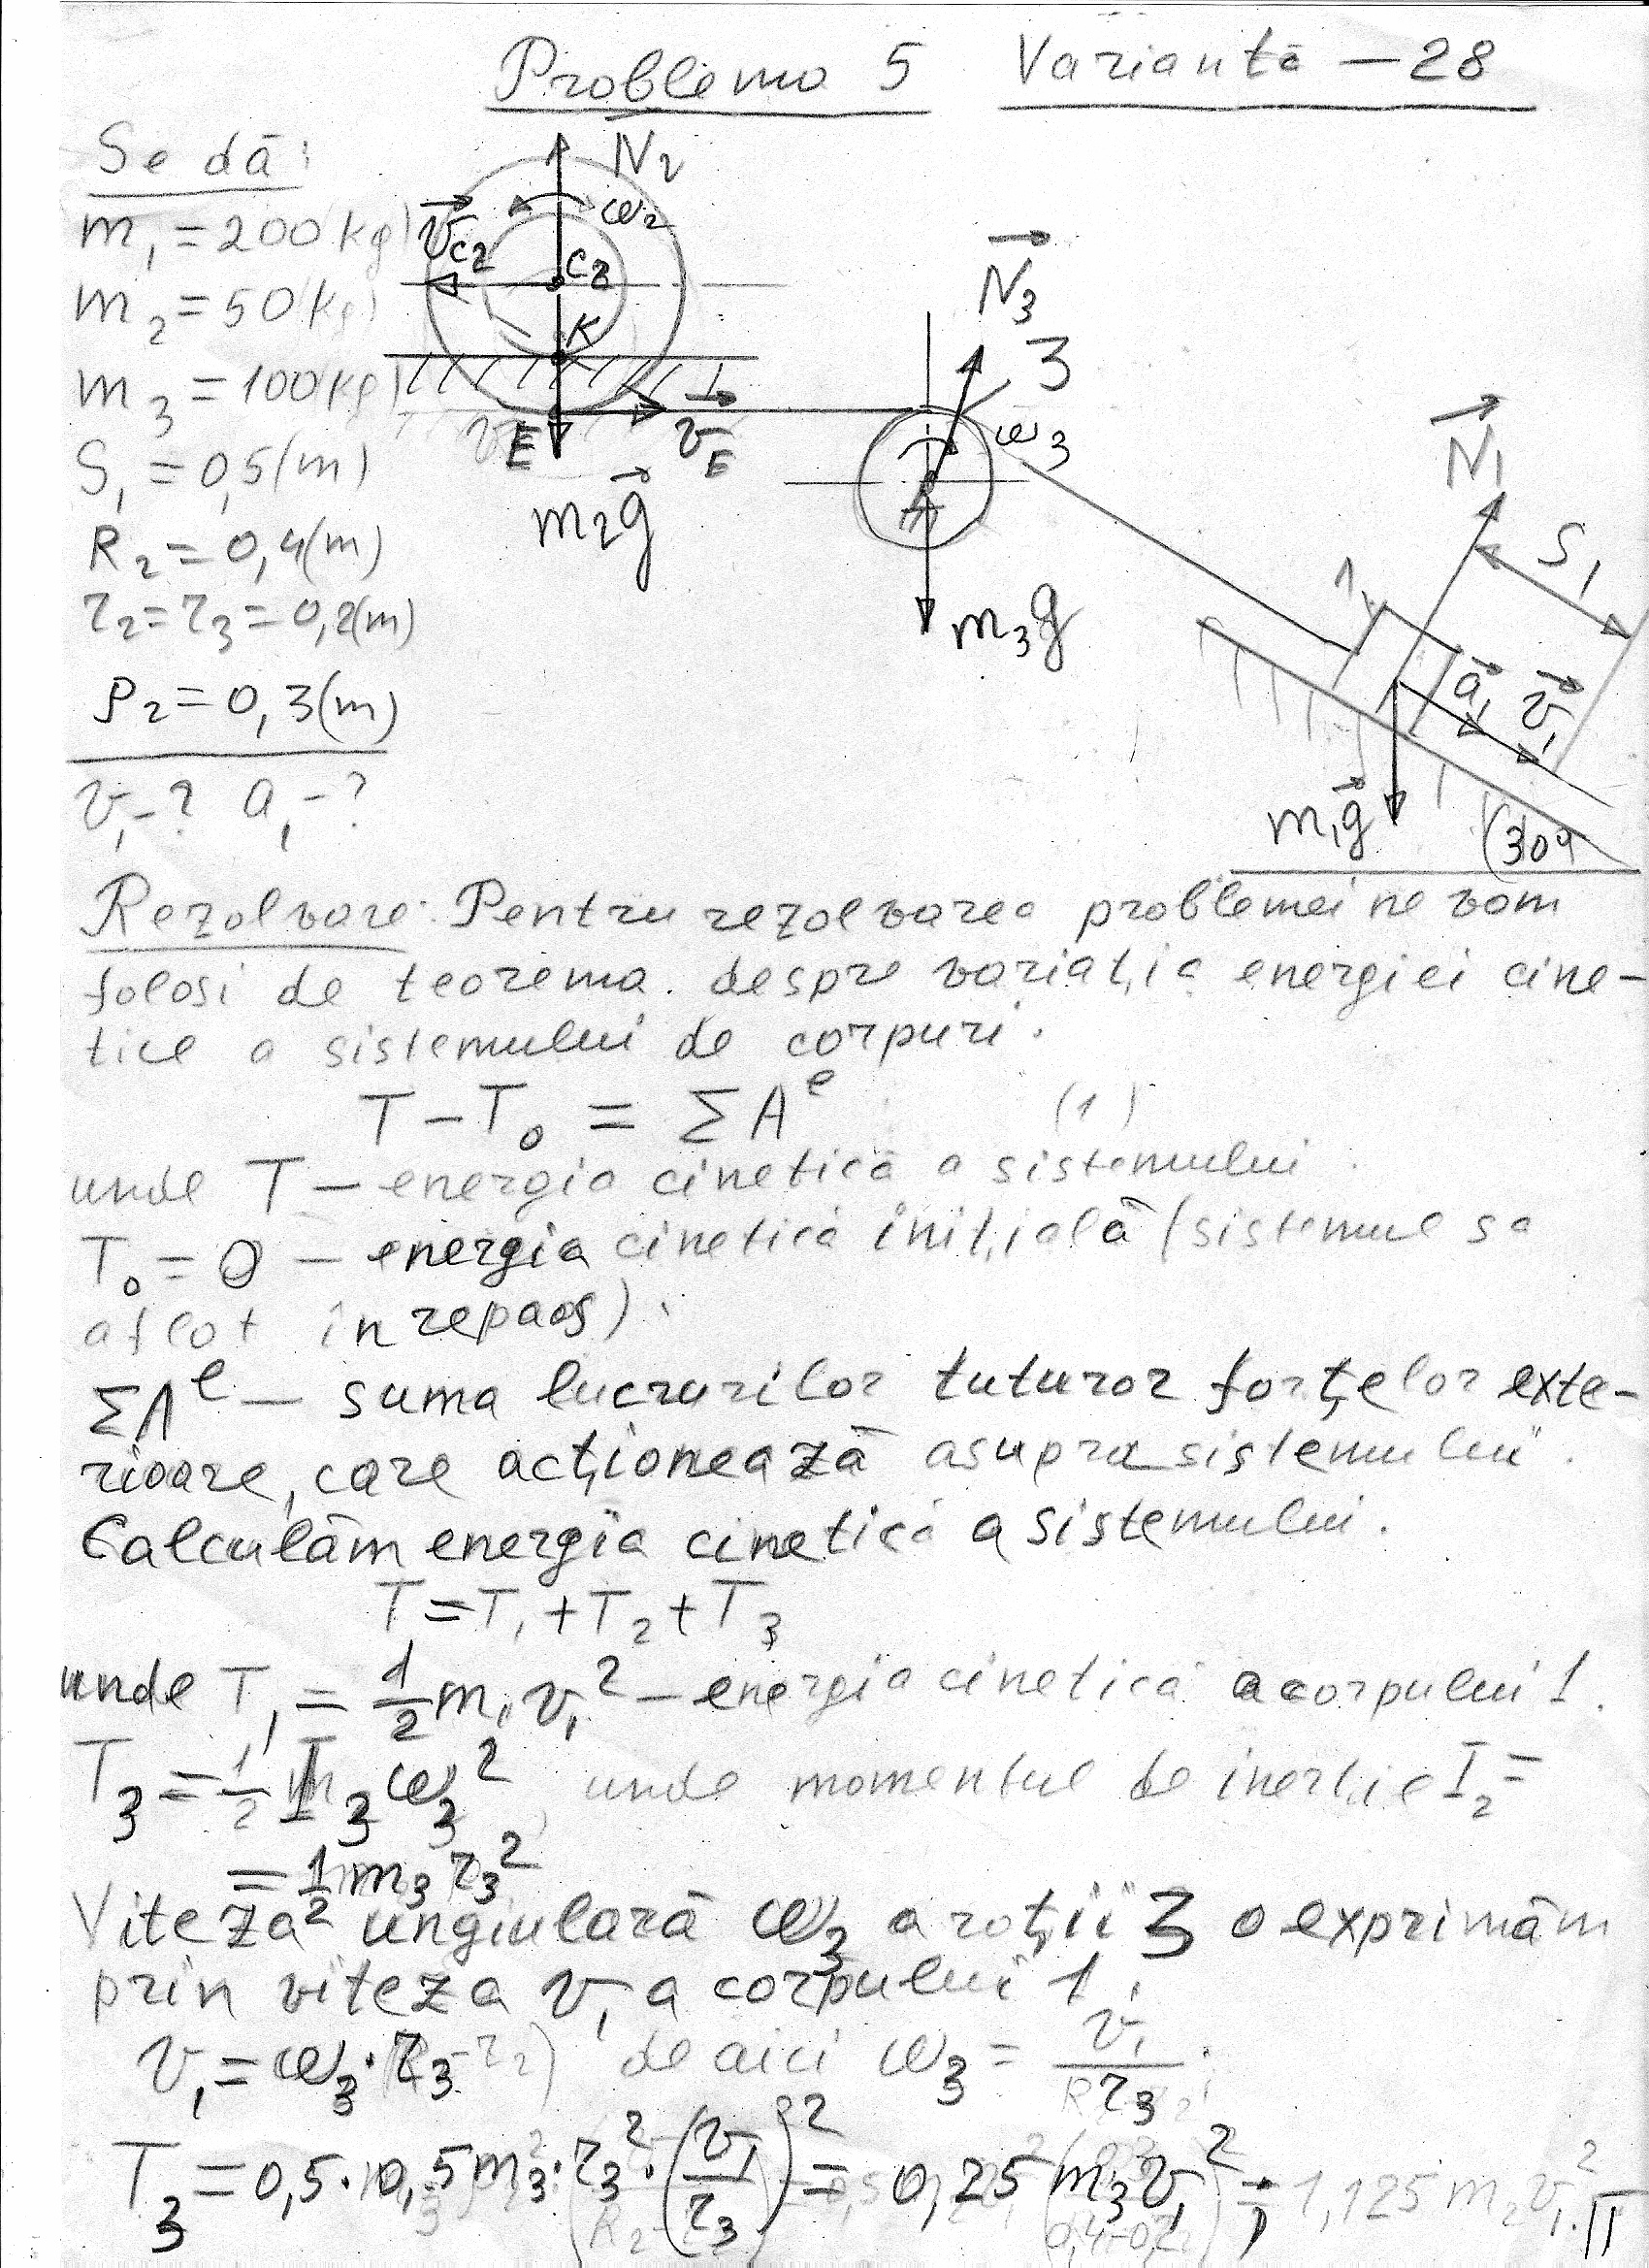 Problema 5 Varianta – 28
Se dă:
m₁ = 200 (kg)
m₂ = 50 (kg)
m₃ = 100 (kg)
S₁ = 0,5 (m)
R₂ = 0,4 (m)
r₂ = r₃ = 0,2 (m)
ρ₂ = 0,3 (m)
v₁ - ? a₁ - ?
N₂
v_C2
ω₂
C₂
K
E
v_E
m₂g
N₃
3
ω₃
A
m₃g
N₁
S₁
1
a₁
v₁
m₁g
30°
Rezolvare: Pentru rezolvarea problemei ne vom
folosi de teorema despre variația energiei cine-
tice a sistemului de corpuri.
T – T₀ = ΣAᵉ (1)
unde T – energia cinetică a sistemului.
T₀ = 0 – energia cinetică inițială (sistemul sa
aflat în repaos).
ΣAᵉ – suma lucrurilor tuturor forțelor exte-
rioare, care acționează asupra sistemului.
Calculăm energia cinetică a sistemului.
T = T₁ + T₂ + T₃
unde T₁ = 1/2 m₁v₁² – energia cinetică a corpului 1.
T₃ = 1/2 I₃ω₃² unde momentul de inerție I₂ =
= 1/2 m₃r₃²
Viteza ungiulară ω₃ a roții 3 o exprimăm
prin viteza v₁ a corpului 1.
v₁ = ω₃·r₃ de aici ω₃ = v₁/r₃
T₃ = 0,5·0,5m₃·r₃²·(v₁/r₃)² = 0,25 m₃v₁²